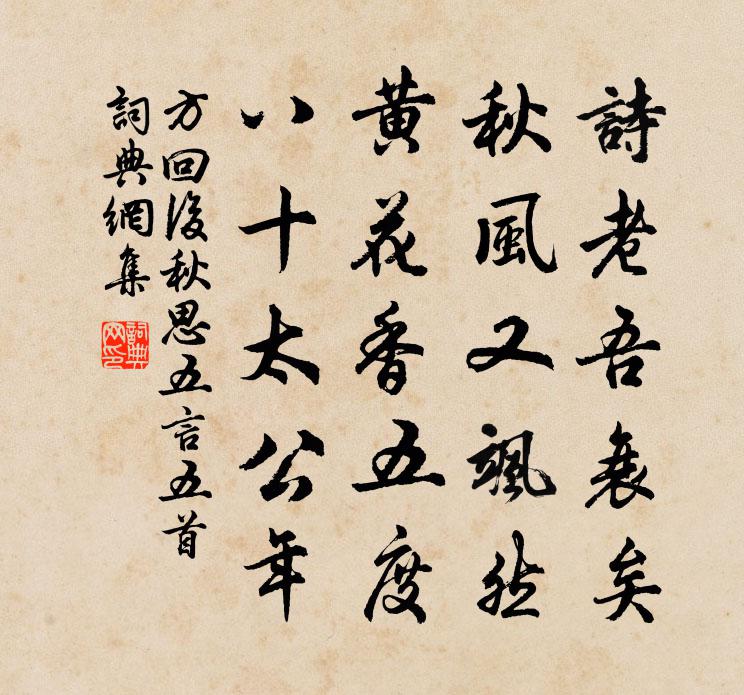 詩老吾衰矣
秋風又颯然
黄花香五度
八十太公年
方回後秋思五言五首
詞典網集
詞典网印